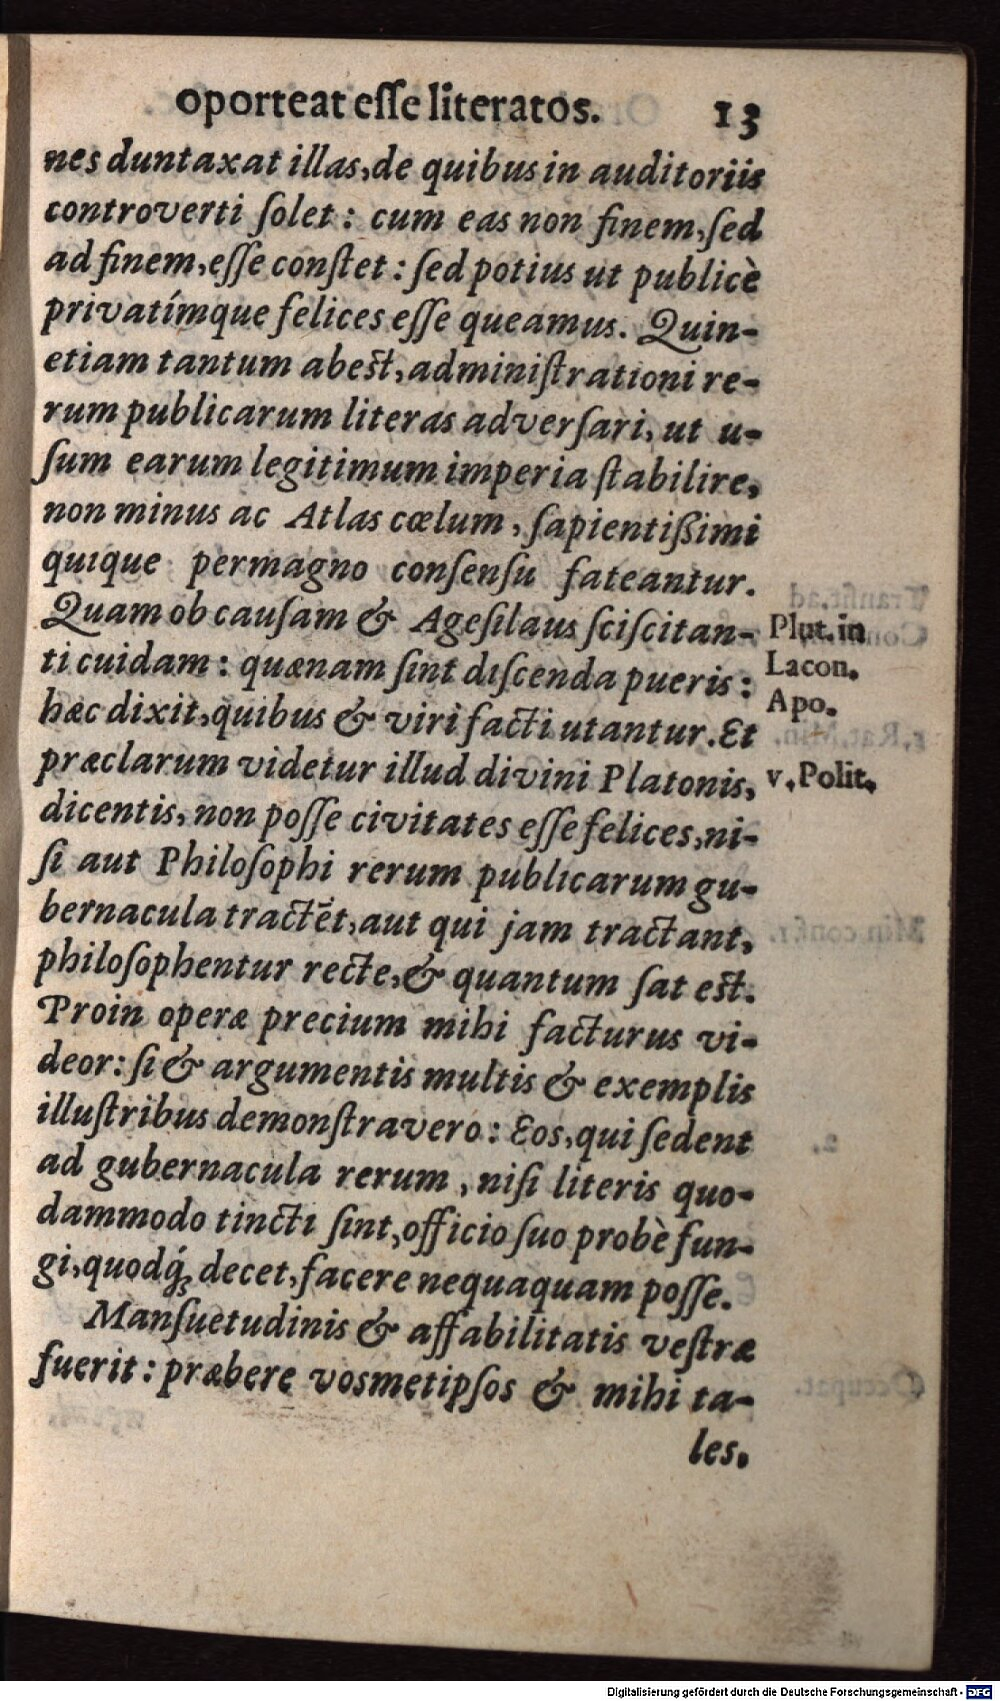 oporteat eſſe literatos. 13
nes duntaxat illas, de quibus in auditoriis
controverti ſolet : cum eas non finem, ſed
ad finem, eſſe conſtet : ſed potius ut publicè
privatímque felices eſſe queamus. Quin-
etiam tantum abeſt, adminiſtrationi re-
rum publicarum literas adverſari, ut u-
ſum earum legitimum imperia ſtabilire,
non minus ac Atlas cœlum, ſapientißimi
quique permagno conſenſu fateantur.
Quam ob cauſam & Ageſilaus ſciſcitan-
ti cuidam : quænam ſint diſcenda pueris :
hæc dixit, quibus & viri facti utantur. Et
præclarum videtur illud divini Platonis,
dicentis, non poſſe civitates eſſe felices, ni-
ſi aut Philoſophi rerum publicarum gu-
bernacula tractēt, aut qui jam tractant,
philoſophentur recte, & quantum ſat eſt.
Proin operæ precium mihi facturus vi-
deor : ſi & argumentis multis & exemplis
illuſtribus demonſtravero : Eos, qui ſedent
ad gubernacula rerum, niſi literis quo-
dammodo tincti ſint, officio ſuo probè fun-
gi, quodq́ꝫ decet, facere nequaquam poſſe.
Manſuetudinis & affabilitatis veſtræ
fuerit : præbere vosmetipſos & mihi ta-
les.
Plut. in
Lacon.
Apo.
v. Polit.
Digitalisierung gefördert durch die Deutsche Forschungsgemeinschaft - DFG